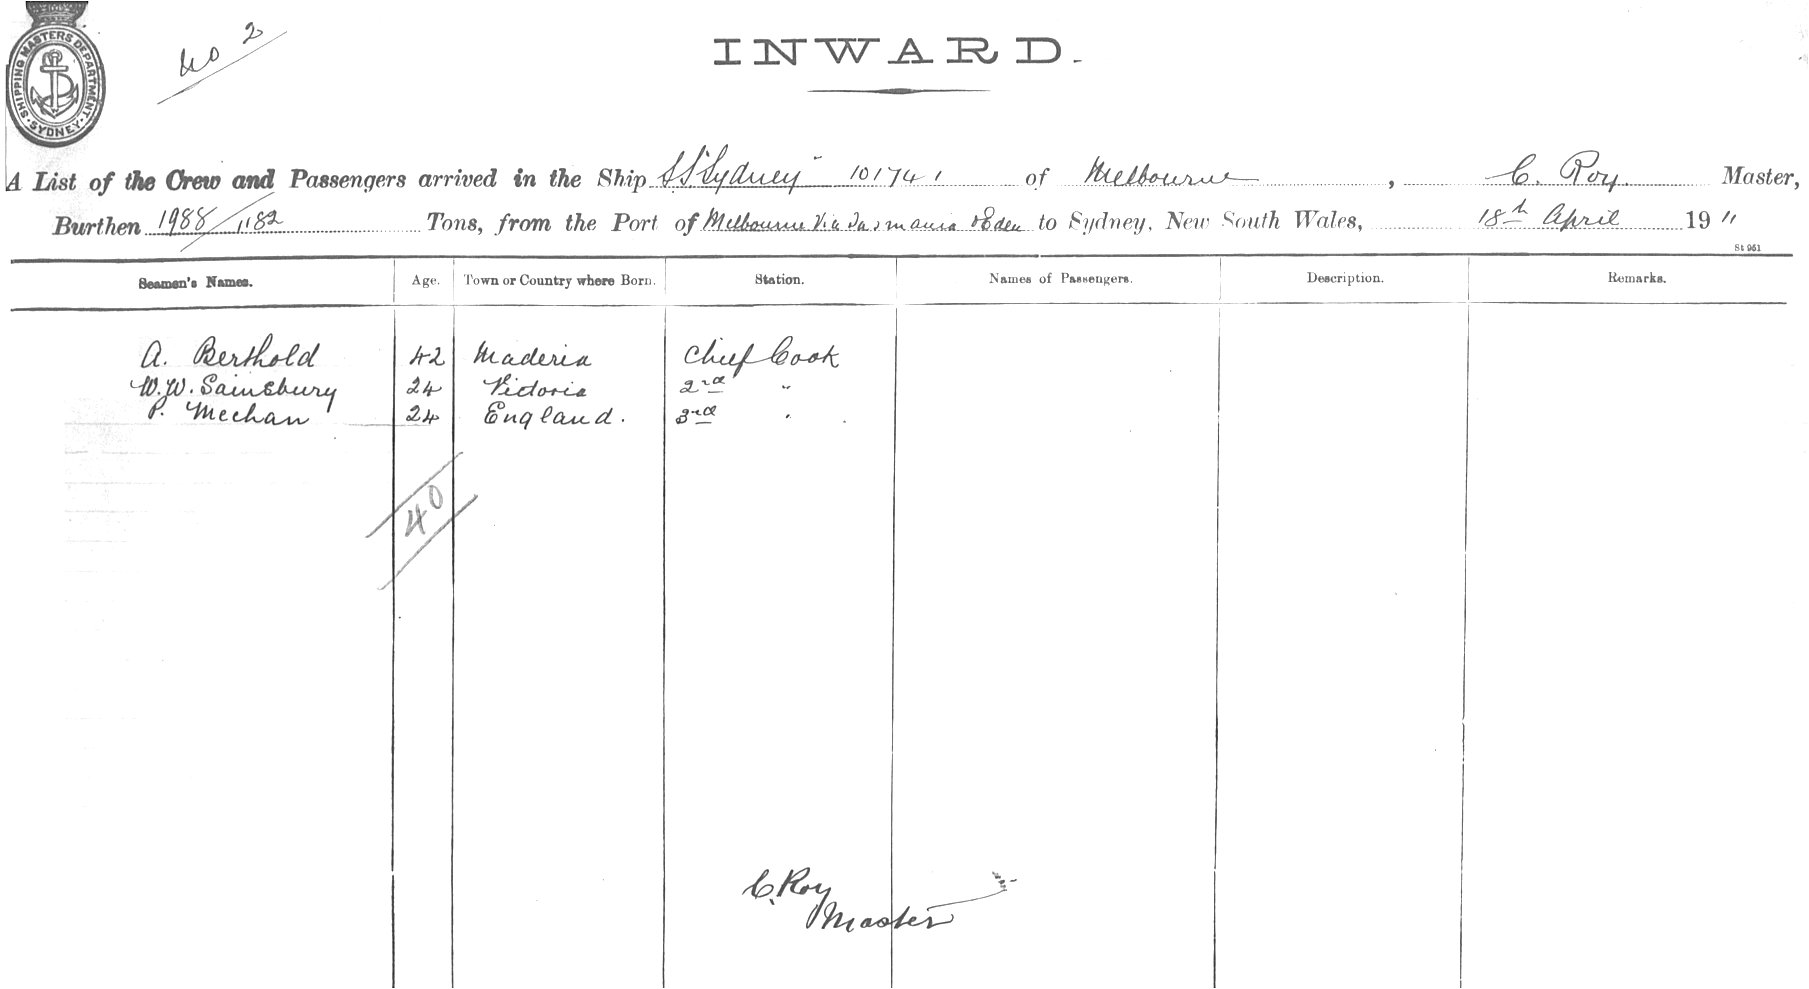 SHIPPING MASTERS DEPARTMENT
SYDNEY
No 2
INWARD.
A List of the Crew and Passengers arrived in the Ship S.S. Sydney 101741 of Melbourne, C. Roy. Master,
Burthen 1988/1182 Tons, from the Port of Melbourne Via Tasmania & Eden to Sydney, New South Wales, 18th April 19 11
St 951
Seamen's Names. Age. Town or Country where Born. Station. Names of Passengers. Description. Remarks.
A. Berthold 42 Maderia Chief Cook
W.W. Sainsbury 24 Victoria 2nd "
P. Meehan 24 England. 3rd "
40
C. Roy
Master